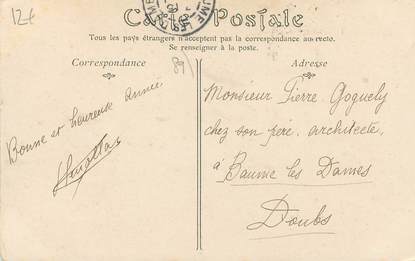 12€
Carte Postale
Tous les pays étrangers n'acceptent pas la correspondance au recto.
Se renseigner à la poste.
Correspondance
Adresse
Bonne et heureuse année
Monsieur Pierre Goguely
chez son père, architecte,
à Baume les Dames
Doubs